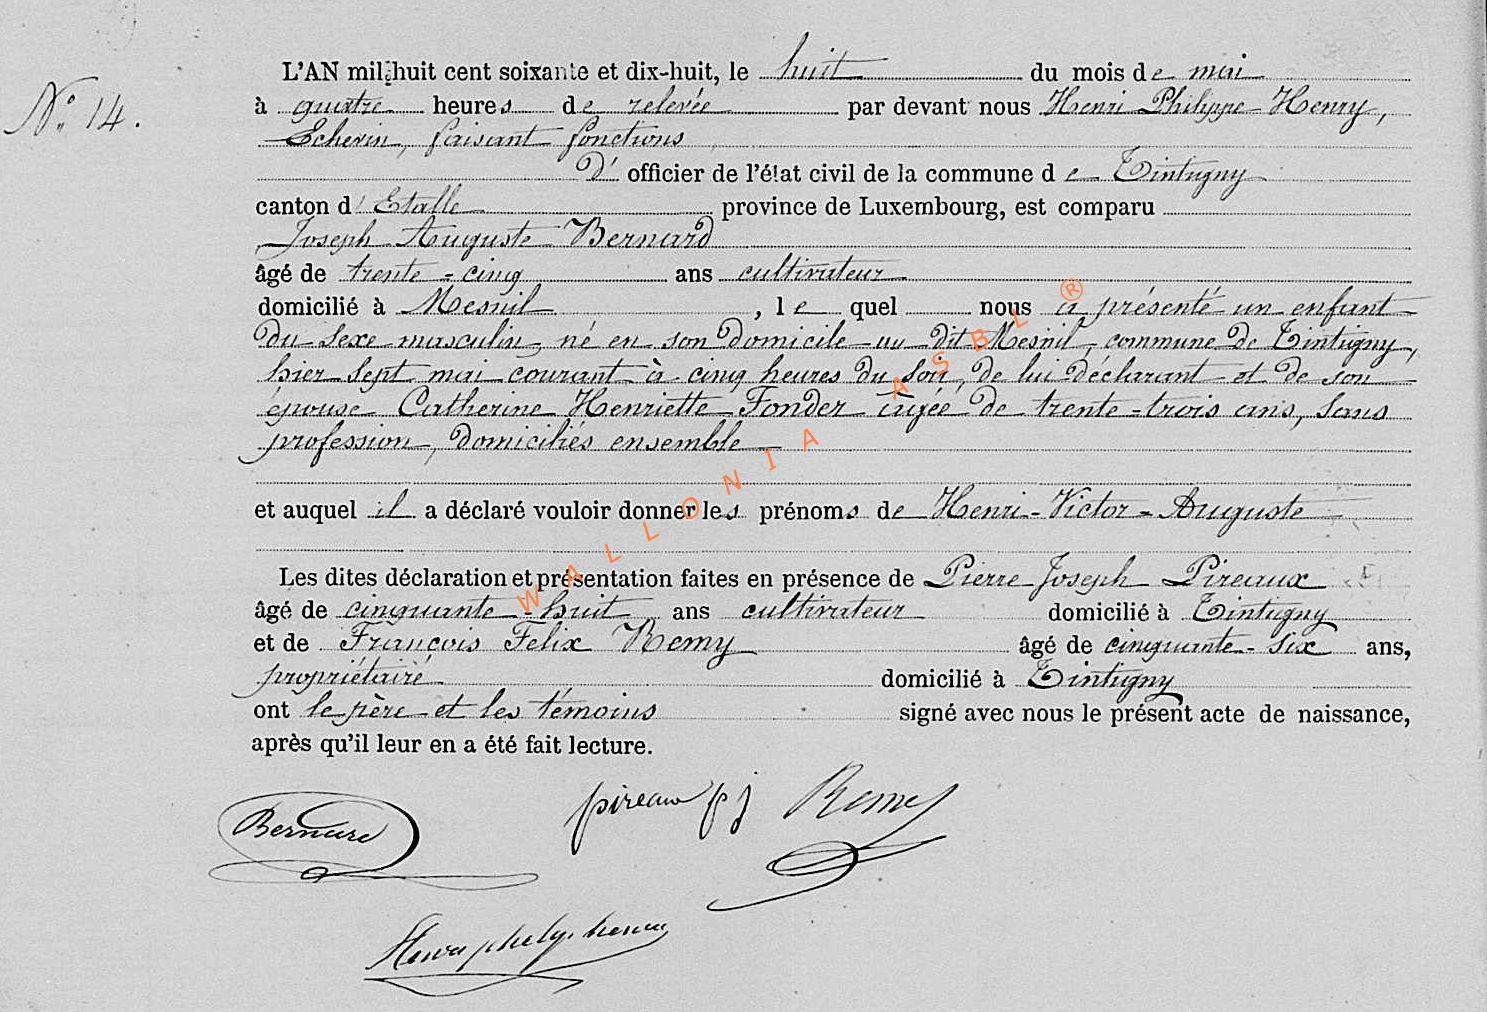 N° 14.
L'AN mil huit cent soixante et dix-huit, le huit du mois de mai
à quatre heures de relevée par devant nous Henri Philippe Henry,
Echevin, faisant fonctions
D' officier de l'état civil de la commune de Tintigny
canton d'Etalle province de Luxembourg, est comparu
Joseph Auguste Bernard
âgé de trente-cinq ans cultivateur
domicilié à Mesnil, le quel nous a présenté un enfant
du sexe masculin, né en son domicile au dit Mesnil, commune de Tintigny,
hier sept mai courant à cinq heures du soir, de lui déclarant et de son
épouse Catherine Henriette Fonder âgée de trente-trois ans, sans
profession, domiciliés ensemble
et auquel il a déclaré vouloir donner les prénoms de Henri-Victor-Auguste
Les dites déclaration et présentation faites en présence de Pierre Joseph Pireaux
âgé de cinquante-huit ans cultivateur domicilié à Tintigny
et de François Felix Remy âgé de cinquante-six ans,
propriétaire domicilié à Tintigny
ont le père et les témoins signé avec nous le présent acte de naissance,
après qu'il leur en a été fait lecture.
Bernard pireaux pj Remy
Henri philip. henry
WALLONIA ASBL ®